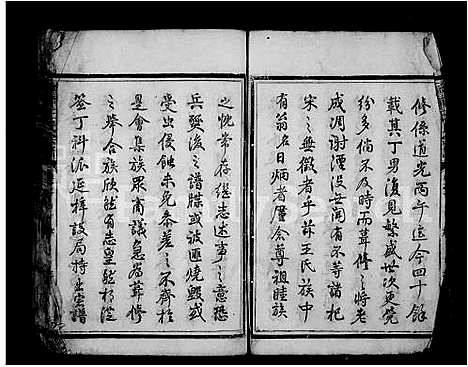 修係道光丙午迄今四十餘
載其丁男復見繁盛世次更覺
紛多倘不及時而葺修之將老
成凋謝湮沒無聞有不等諸杞
宋之無徵者乎訴王氏族中
有翁名曰炳者屢念尊祖睦族
之忱常存繼志述事之意恐
兵燹後之譜牒或被匪燒毀或
受虫侵蝕未免參差之不齊於
是會集族眾商議急為葺修
之舉合族欣然有志皇然相從
簽丁科派延梓設局特立宗譜